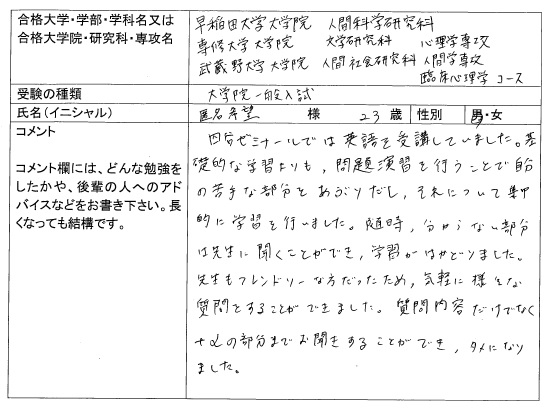 合格大学・学部・学科名又は
合格大学院・研究科・専攻名
早稲田大学大学院 人間科学研究科
専修大学大学院 文学研究科 心理学専攻
武蔵野大学大学院 人間社会研究科 人間学専攻
臨床心理学コース
受験の種類
大学院一般入試
氏名(イニシャル)
匿名希望 様 23歳 性別 男・女
コメント
コメント欄には、どんな勉強を
したかや、後輩の人へのアド
バイスなどをお書き下さい。長
くなっても結構です。
四谷ゼミナールでは英語を受講していました。基
礎的な学習よりも、問題演習を行うことで自分
の苦手な部分をあぶりだし、それについて集中
的に学習を行いました。随時、分からない部分
は先生に聞くことができ、学習がはかどりました。
先生もフレンドリーな方だったため、気軽に様々な
質問をすることができました。質問内容だけでなく
+αの部分までお聞きすることができ、タメになり
ました。